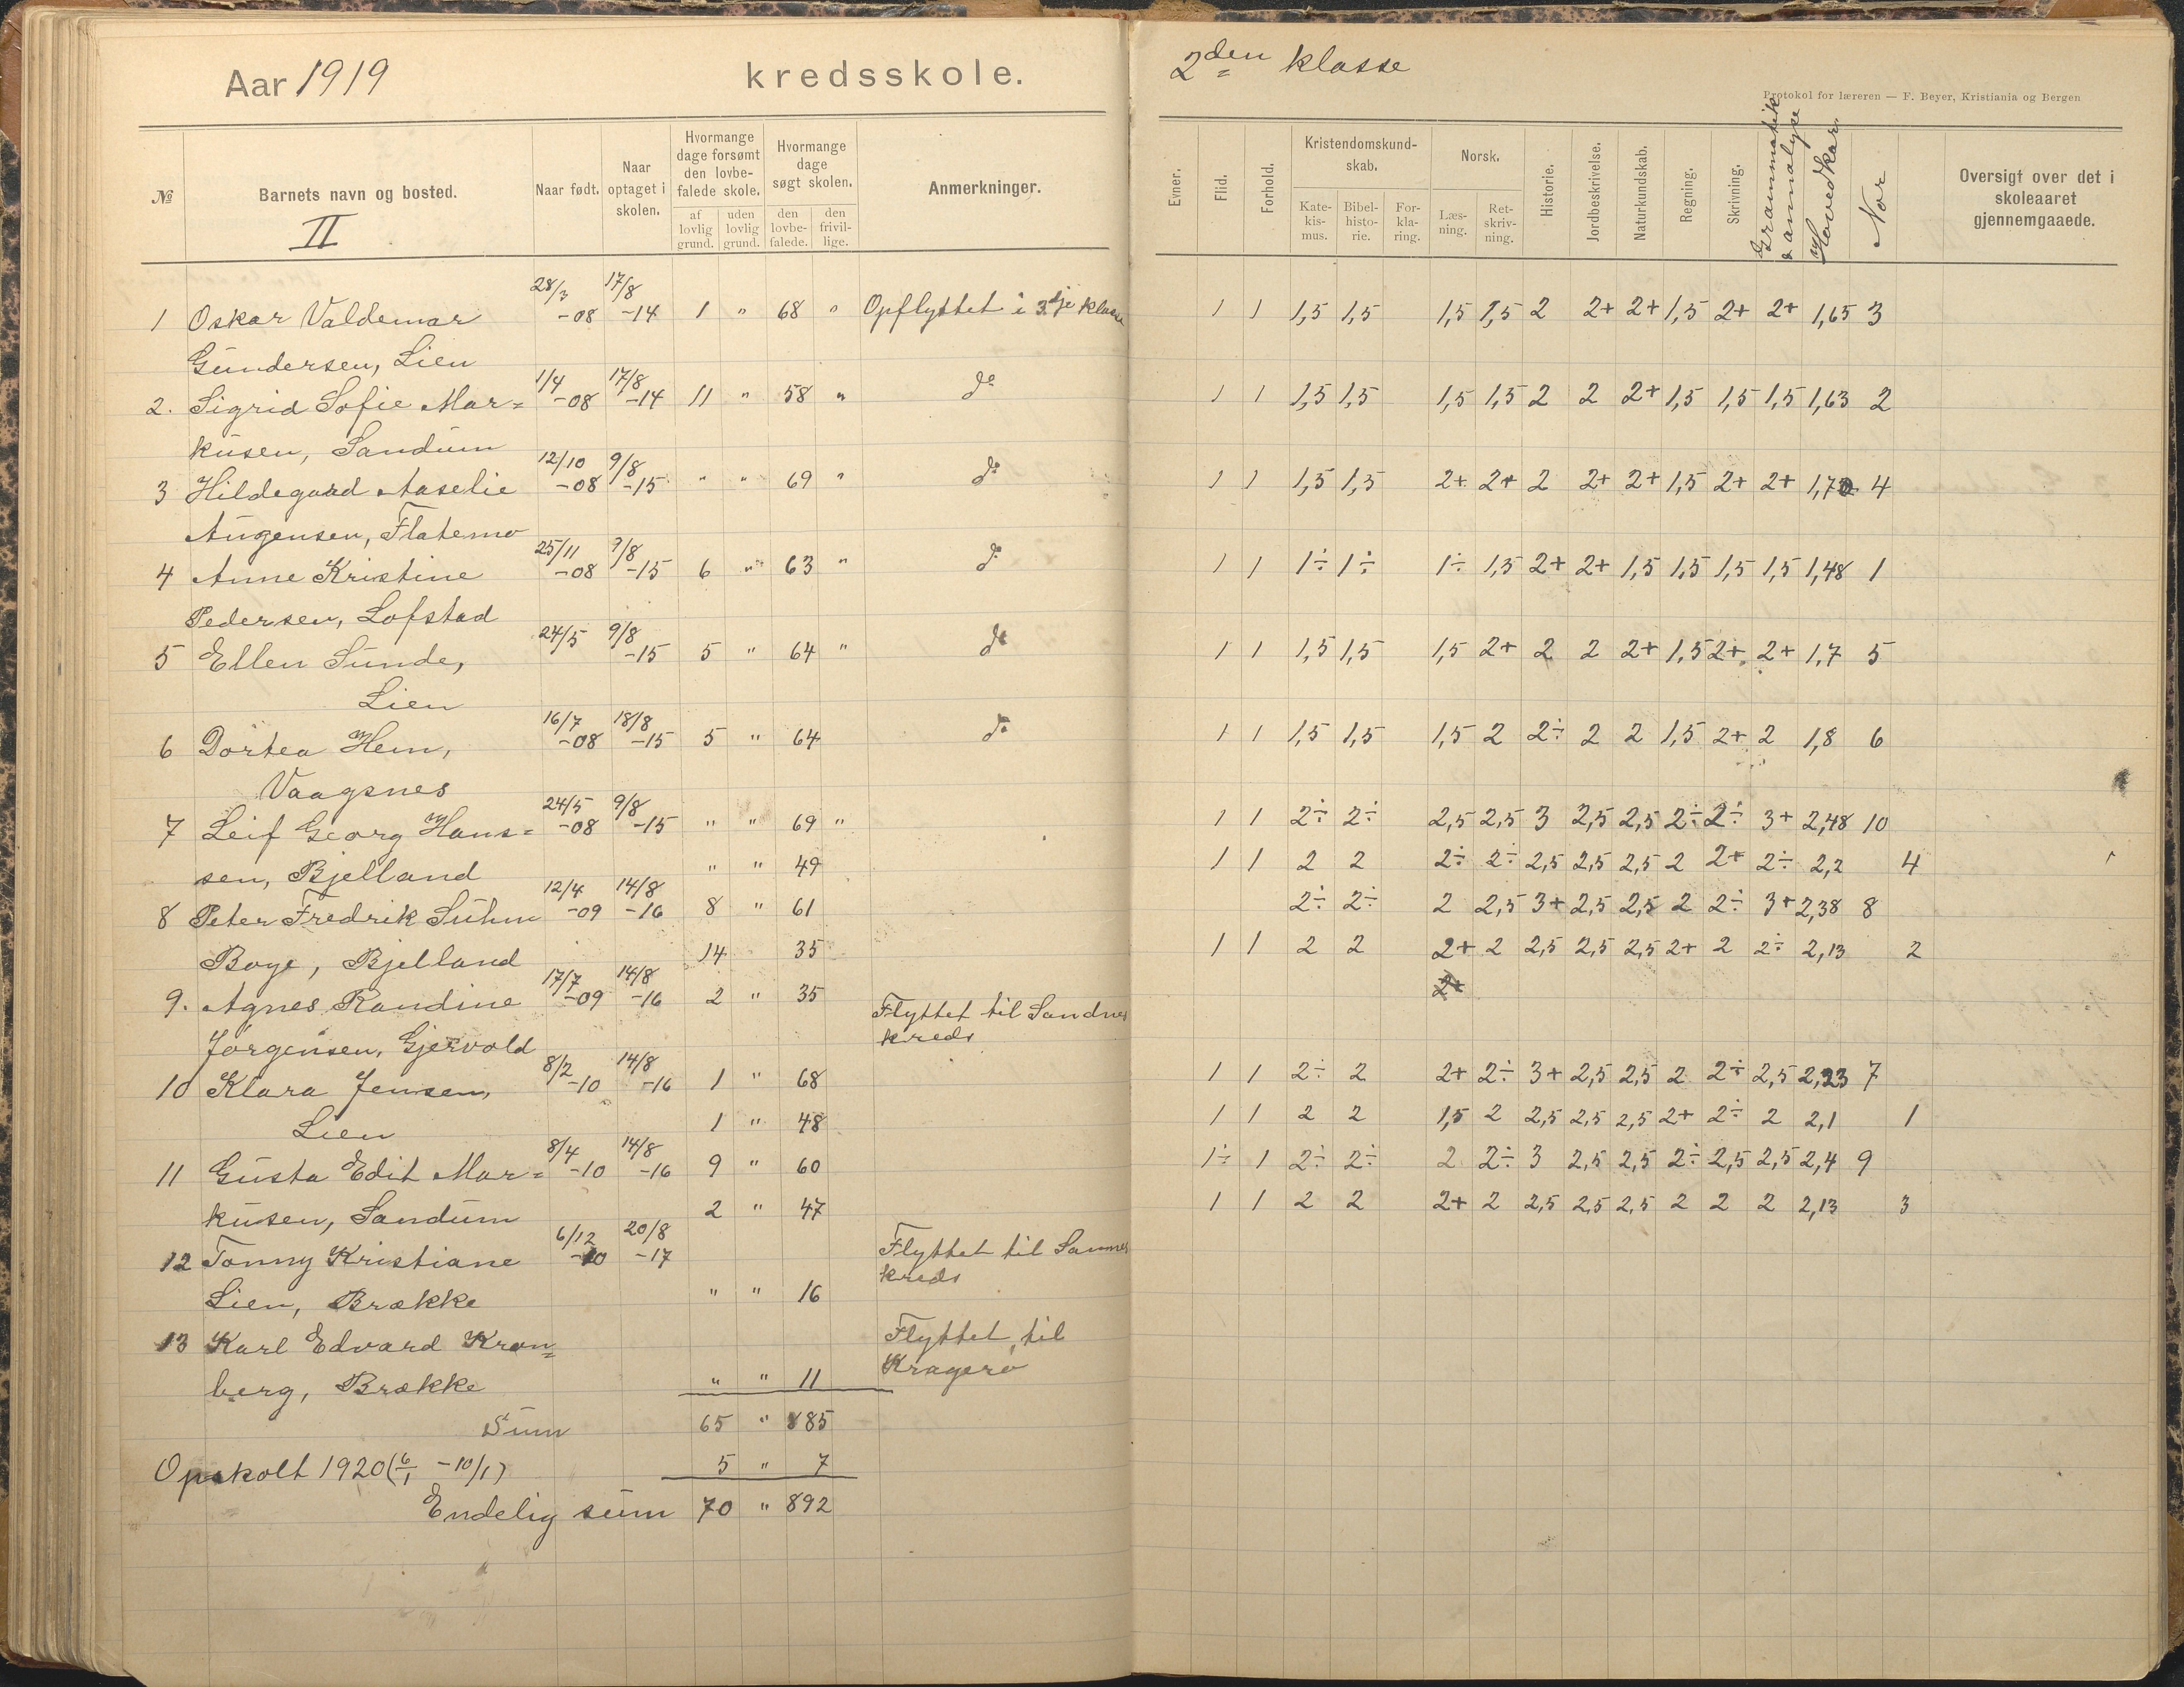 Aar 1919 kredsskole.
№ Barnets navn og bosted. Naar født. Naar optaget i skolen. Hvormange dage forsømt den lovbefalede skole. af lovlig grund. uden lovlig grund. Hvormange dage søgt skolen. den lovbefalede. den frivillige. Anmerkninger.
II
28/3 17/8
1 Oskar Valdemar -08 -14 1 " 68 " Opflyttet i 3dje klasse
Gundersen, Lien
1/4 17/8
2. Sigrid Sofie Mar= -08 -14 11 " 58 " do
kusen, Sandum
12/10 9/8
3 Hildegaard Aaselie -08 -15 " " 69 " do
Augensen, Flatemo
25/11 9/8
4 Anne Kristine -08 -15 6 " 63 " do
Pedersen, Lofstad
24/5 9/8
5 Ellen Sunde, -15 5 " 64 " do
Lien
16/7 18/8
6 Dortea Hem, -08 -15 5 " 64 do
Vaagsnes
24/5 9/8
7 Leif Georg Hans= -08 -15 " " 69 "
sen, Bjelland " " 49
12/4 14/8
8 Peter Fredrik Suhm -09 -16 8 " 61
Boye, Bjelland 14 35
17/7 14/8
9. Agnes Randine -09 -16 2 " 35 Flyttet til Sandnes
Jørgensen, Gjervold kreds
8/2 14/8
10 Klara Jensen, -10 -16 1 " 68
Lien 1 " 48
8/4 14/8
11 Gusta Edit Mar= -10 -16 9 " 60
kusen, Sandum 2 " 47
6/12 20/8
12 Tonny Kristiane -10 -17 Flyttet til Sannes
Lien, Brække " " 16 kreds
13 Karl Edvard Kron= Flyttet til
berg, Brække " " 11 Kragerø
Sum 65 " 885
Opskolt 1920 (6/1 -10/1) 5 " 7
Endelig sum 70 " 892
2den klasse
Protokol for læreren — F. Beyer, Kristiania og Bergen
Evner. Flid. Forhold. Kristendomskundskab. Katekismus. Bibelhistorie. Forklaring. Norsk. Læsning. Retskrivning. Historie. Jordbeskrivelse. Naturkundskab. Regning. Skrivning. Grammatik & annalyse Hovedkar. Nor Oversigt over det i skoleaaret gjennemgaaede.
1 1 1,5 1,5 1,5 1,5 2 2+ 2+ 1,5 2+ 2+ 1,65 3
1 1 1,5 1,5 1,5 1,5 2 2 2+ 1,5 1,5 1,5 1,63 2
1 1 1,5 1,5 2+ 2+ 2 2+ 2+ 1,5 2+ 2+ 1,70 4
1 1 1÷ 1÷ 1÷ 1,5 2+ 2+ 1,5 1,5 1,5 1,5 1,48 1
1 1 1,5 1,5 1,5 2+ 2 2 2+ 1,5 2+ 2+ 1,7 5
1 1 1,5 1,5 1,5 2 2÷ 2 2 1,5 2+ 2 1,8 6
1 1 2÷ 2÷ 2,5 2,5 3 2,5 2,5 2÷ 2÷ 3+ 2,48 10
1 1 2 2 2÷ 2÷ 2,5 2,5 2,5 2 2+ 2÷ 2,2 4
2÷ 2÷ 2 2,5 3+ 2,5 2,5 2 2÷ 3+ 2,38 8
1 1 2 2 2+ 2 2,5 2,5 2,5 2+ 2 2÷ 2,13 2
2+
1 1 2÷ 2 2+ 2÷ 3+ 2,5 2,5 2 2÷ 2,5 2,23 7
1 1 2 2 1,5 2 2,5 2,5 2,5 2+ 2÷ 2 2,1 1
1÷ 1 2÷ 2÷ 2 2÷ 3 2,5 2,5 2÷ 2,5 2,5 2,4 9
1 1 2 2 2+ 2 2,5 2,5 2,5 2 2 2 2,13 3